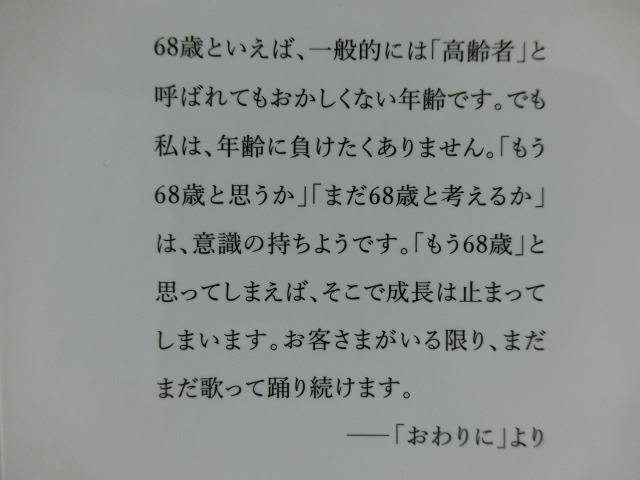 68歳といえば、一般的には「高齢者」と
呼ばれてもおかしくない年齢です。でも
私は、年齢に負けたくありません。「もう
68歳と思うか」「まだ68歳と考えるか」
は、意識の持ちようです。「もう68歳」と
思ってしまえば、そこで成長は止まって
しまいます。お客さまがいる限り、まだ
まだ歌って踊り続けます。
──「おわりに」より